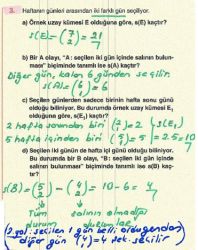 3. Haftanın günleri arasından iki farklı gün seçiliyor.
a) Örnek uzay kümesi E olduğuna göre, s(E) kaçtır?
s(E) = (7 2) = 21
b) Bir A olayı, "A: seçilen iki gün içinde salının bulunması" biçiminde tanımlı ise s(A) kaçtır?
Diğer gün, kalan 6 günden seçilir.
s(A) = (6 1) = 6
c) Seçilen günlerden sadece birinin hafta sonu günü olduğu biliniyor. Bu durumda örnek uzay kümesi E₁ olduğuna göre, s(E₁) kaçtır?
2 hafta sonundan biri (2 1) = 2
5 hafta içinden biri (5 1) = 5
s(E₁) = 2.5 = 10
d) Seçilen iki günün de hafta içi günü olduğu biliniyor. Bu durumda bir B olayı, "B: seçilen iki gün içinde salının bulunması" biçiminde tanımlı ise, s(B) kaçtır?
s(B) = (5 2) - (4 2) = 10 - 6 = 4
Tüm durum
salının olmadığı durumlar
2. yol: seçilen 1 gün belli olduğundan
diğer gün (4 1) = 4 tek seçilir.